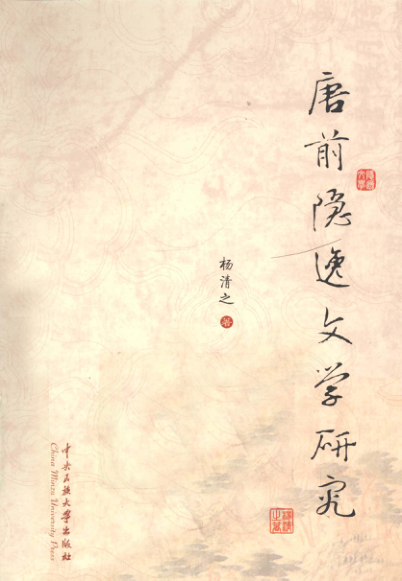 唐前隐逸文学研究
杨清之
著
中央民族大学出版社
China Minzu University Press